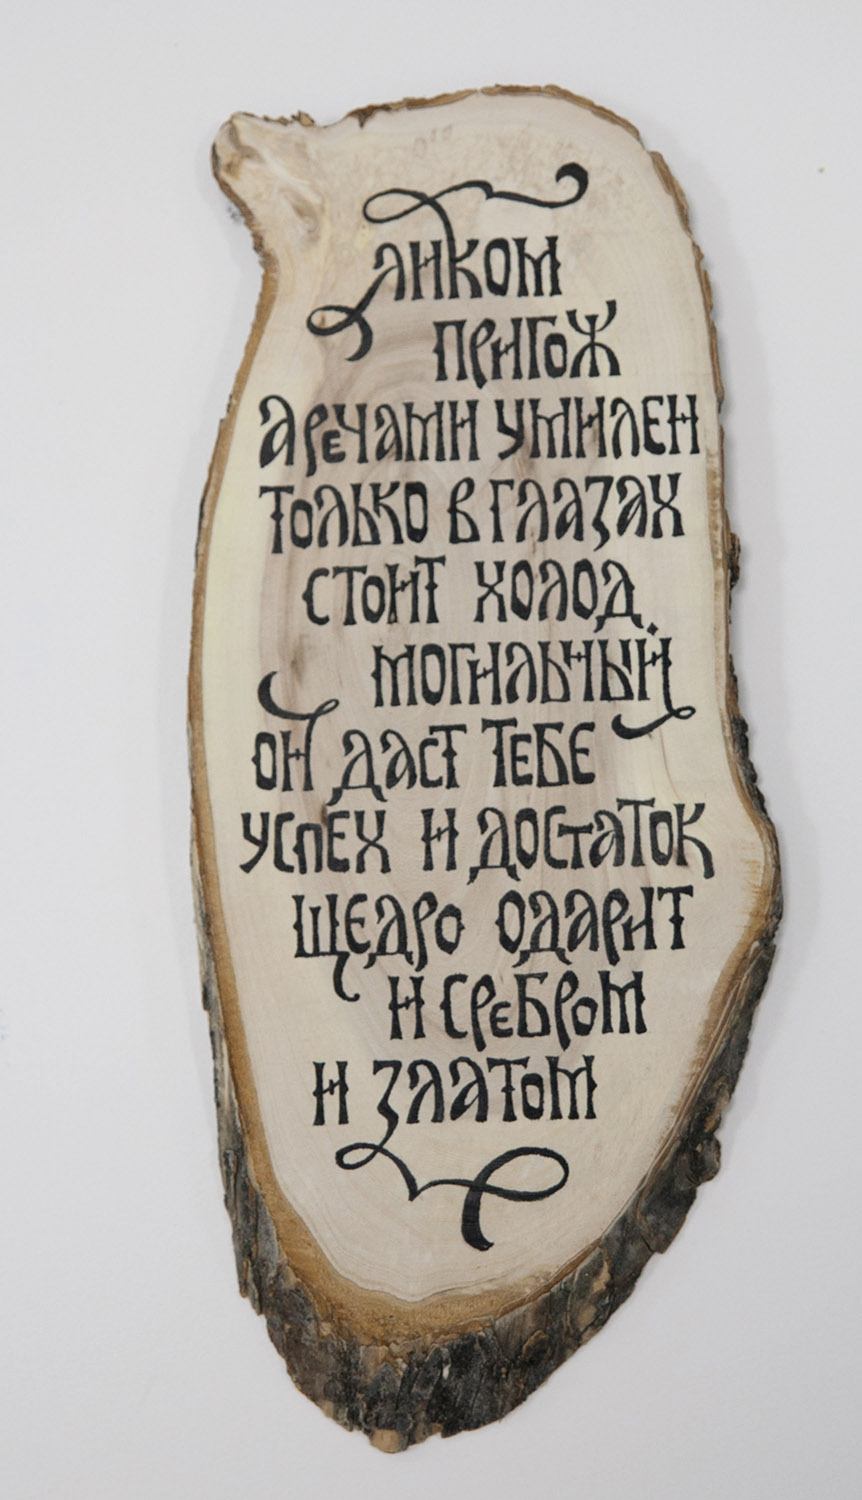 Ликом
пригож
а речами умилен
только в глазах
стоит холод
могильный
он даст тебе
успех и достаток
щедро одарит
и сребром
и златом